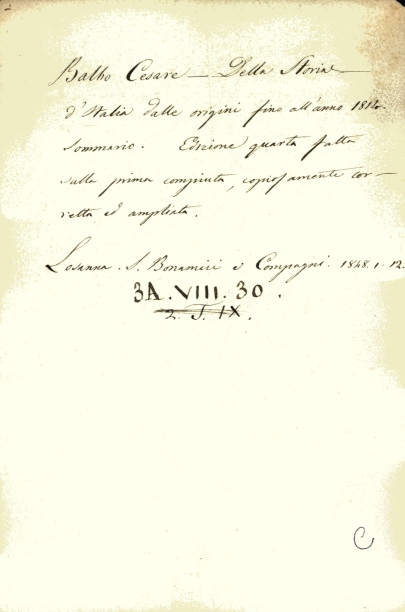 Balbo Cesare — Della Storia
d'Italia dalle origini fino all'anno 1814.
Sommario. Edizione quarta fatta
sulla prima compiuta, copiosamente cor-
retta ed ampliata.
Losanna. S. Bonamici e Compagni. 1848. 1. 12.
3A. VIII. 30.
2. J. IX.
C